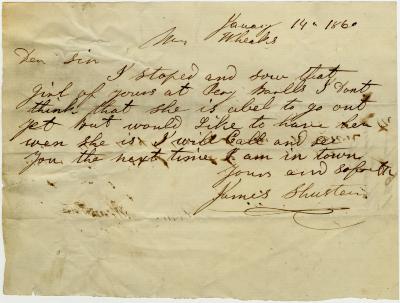 Januay 14th 1860
Mr Wheales
Dear Sir
I stoped and sow that
girl of yours at I Dont
think that she is abel to go out
yet but would Like to have her
wen she is I will Call and see
you the next time I am in town
yours and soforth
James